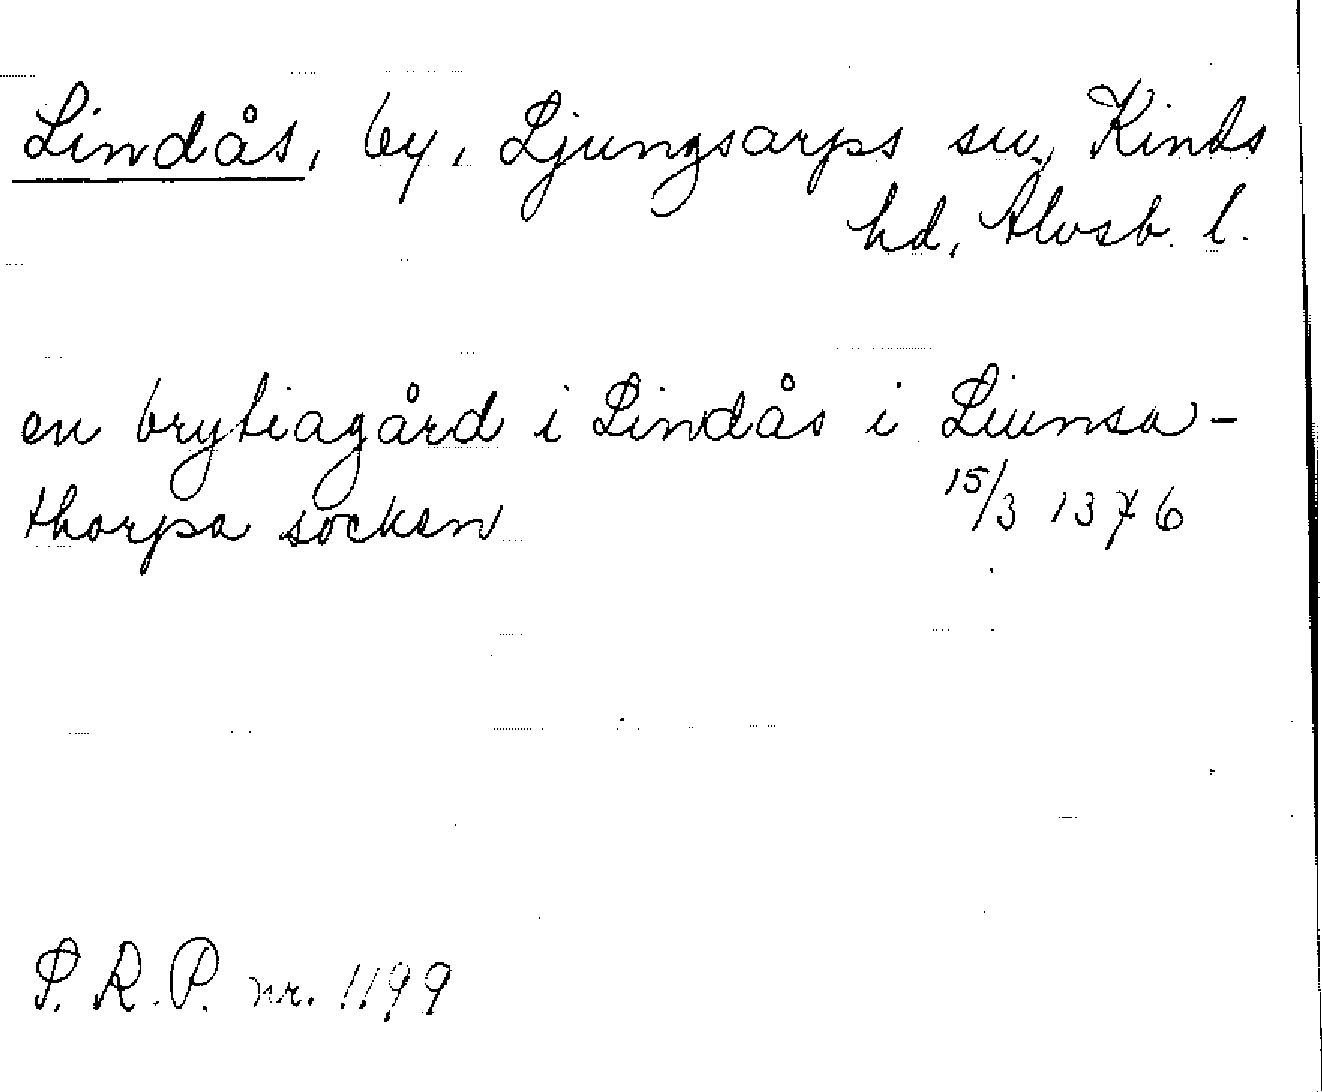 Lindås, by, Ljungsarps sn, Kinds
hd, Älvsb. l.
en brytiagård i Lindås i Liunsa-
thorpa socken 15/3 1376
S. R. P. nr. 1199